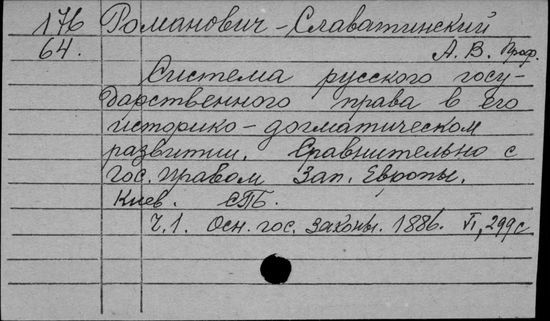 176 Романович-Славатинский
64. А. В. Проф.
Система русского госу-
дарственного права в его
историко-догматическом
развитии. Сравнительно с
гос. правом Зап. Европы.
Киев. СПБ.
Ч.1. Осн. гос. законы. 1886. VI, 299 с